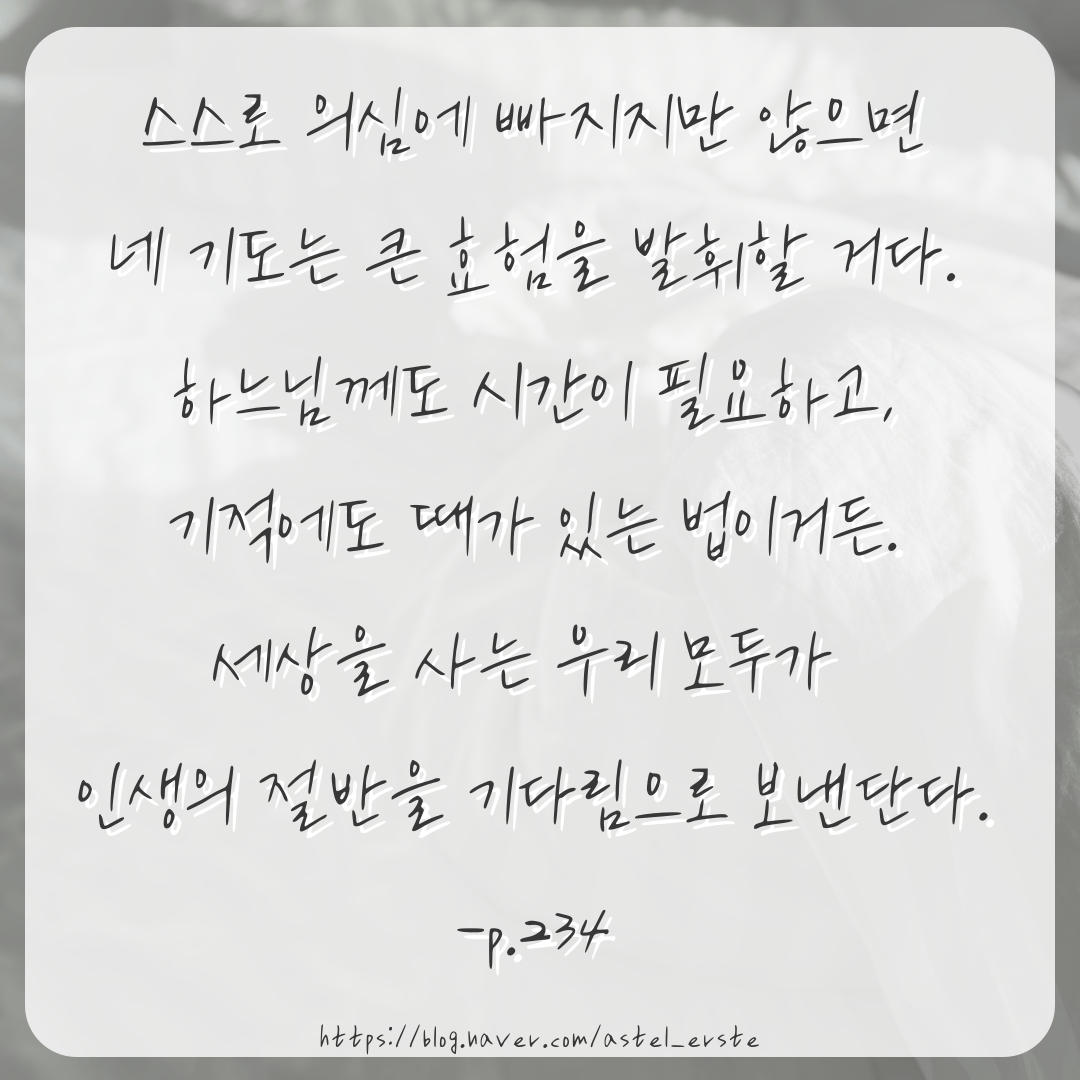 스스로 의심에 빠지지만 않으면
네 기도는 큰 효험을 발휘할 거다.
하느님께도 시간이 필요하고,
기적에도 때가 있는 법이거든.
세상을 사는 우리 모두가
인생의 절반을 기다림으로 보낸단다.
-p.234
https://blog.naver.com/astel_erste